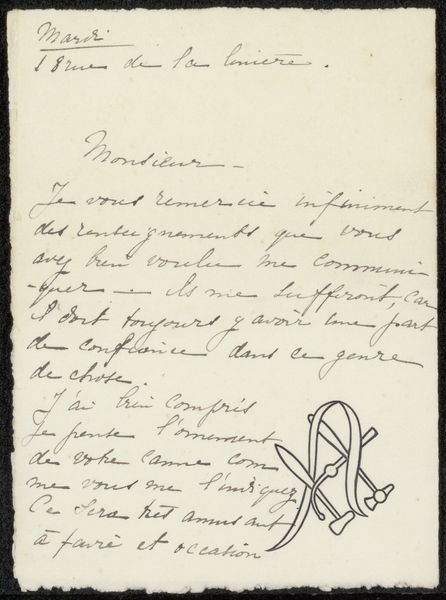 Mardi
18 rue de la linière.
Monsieur -
Je vous remercie infiniment
des renseignements que vous
avez bien voulu me communi-
-quer - Ils me suffiront, car
il doit toujours y avoir une part
de confiance dans ce genre
de chose.
J'ai bien compris
je pense l'ornement
de votre canne com
me vous me l'indiquez
Ce sera très amusant
à faire et occasion